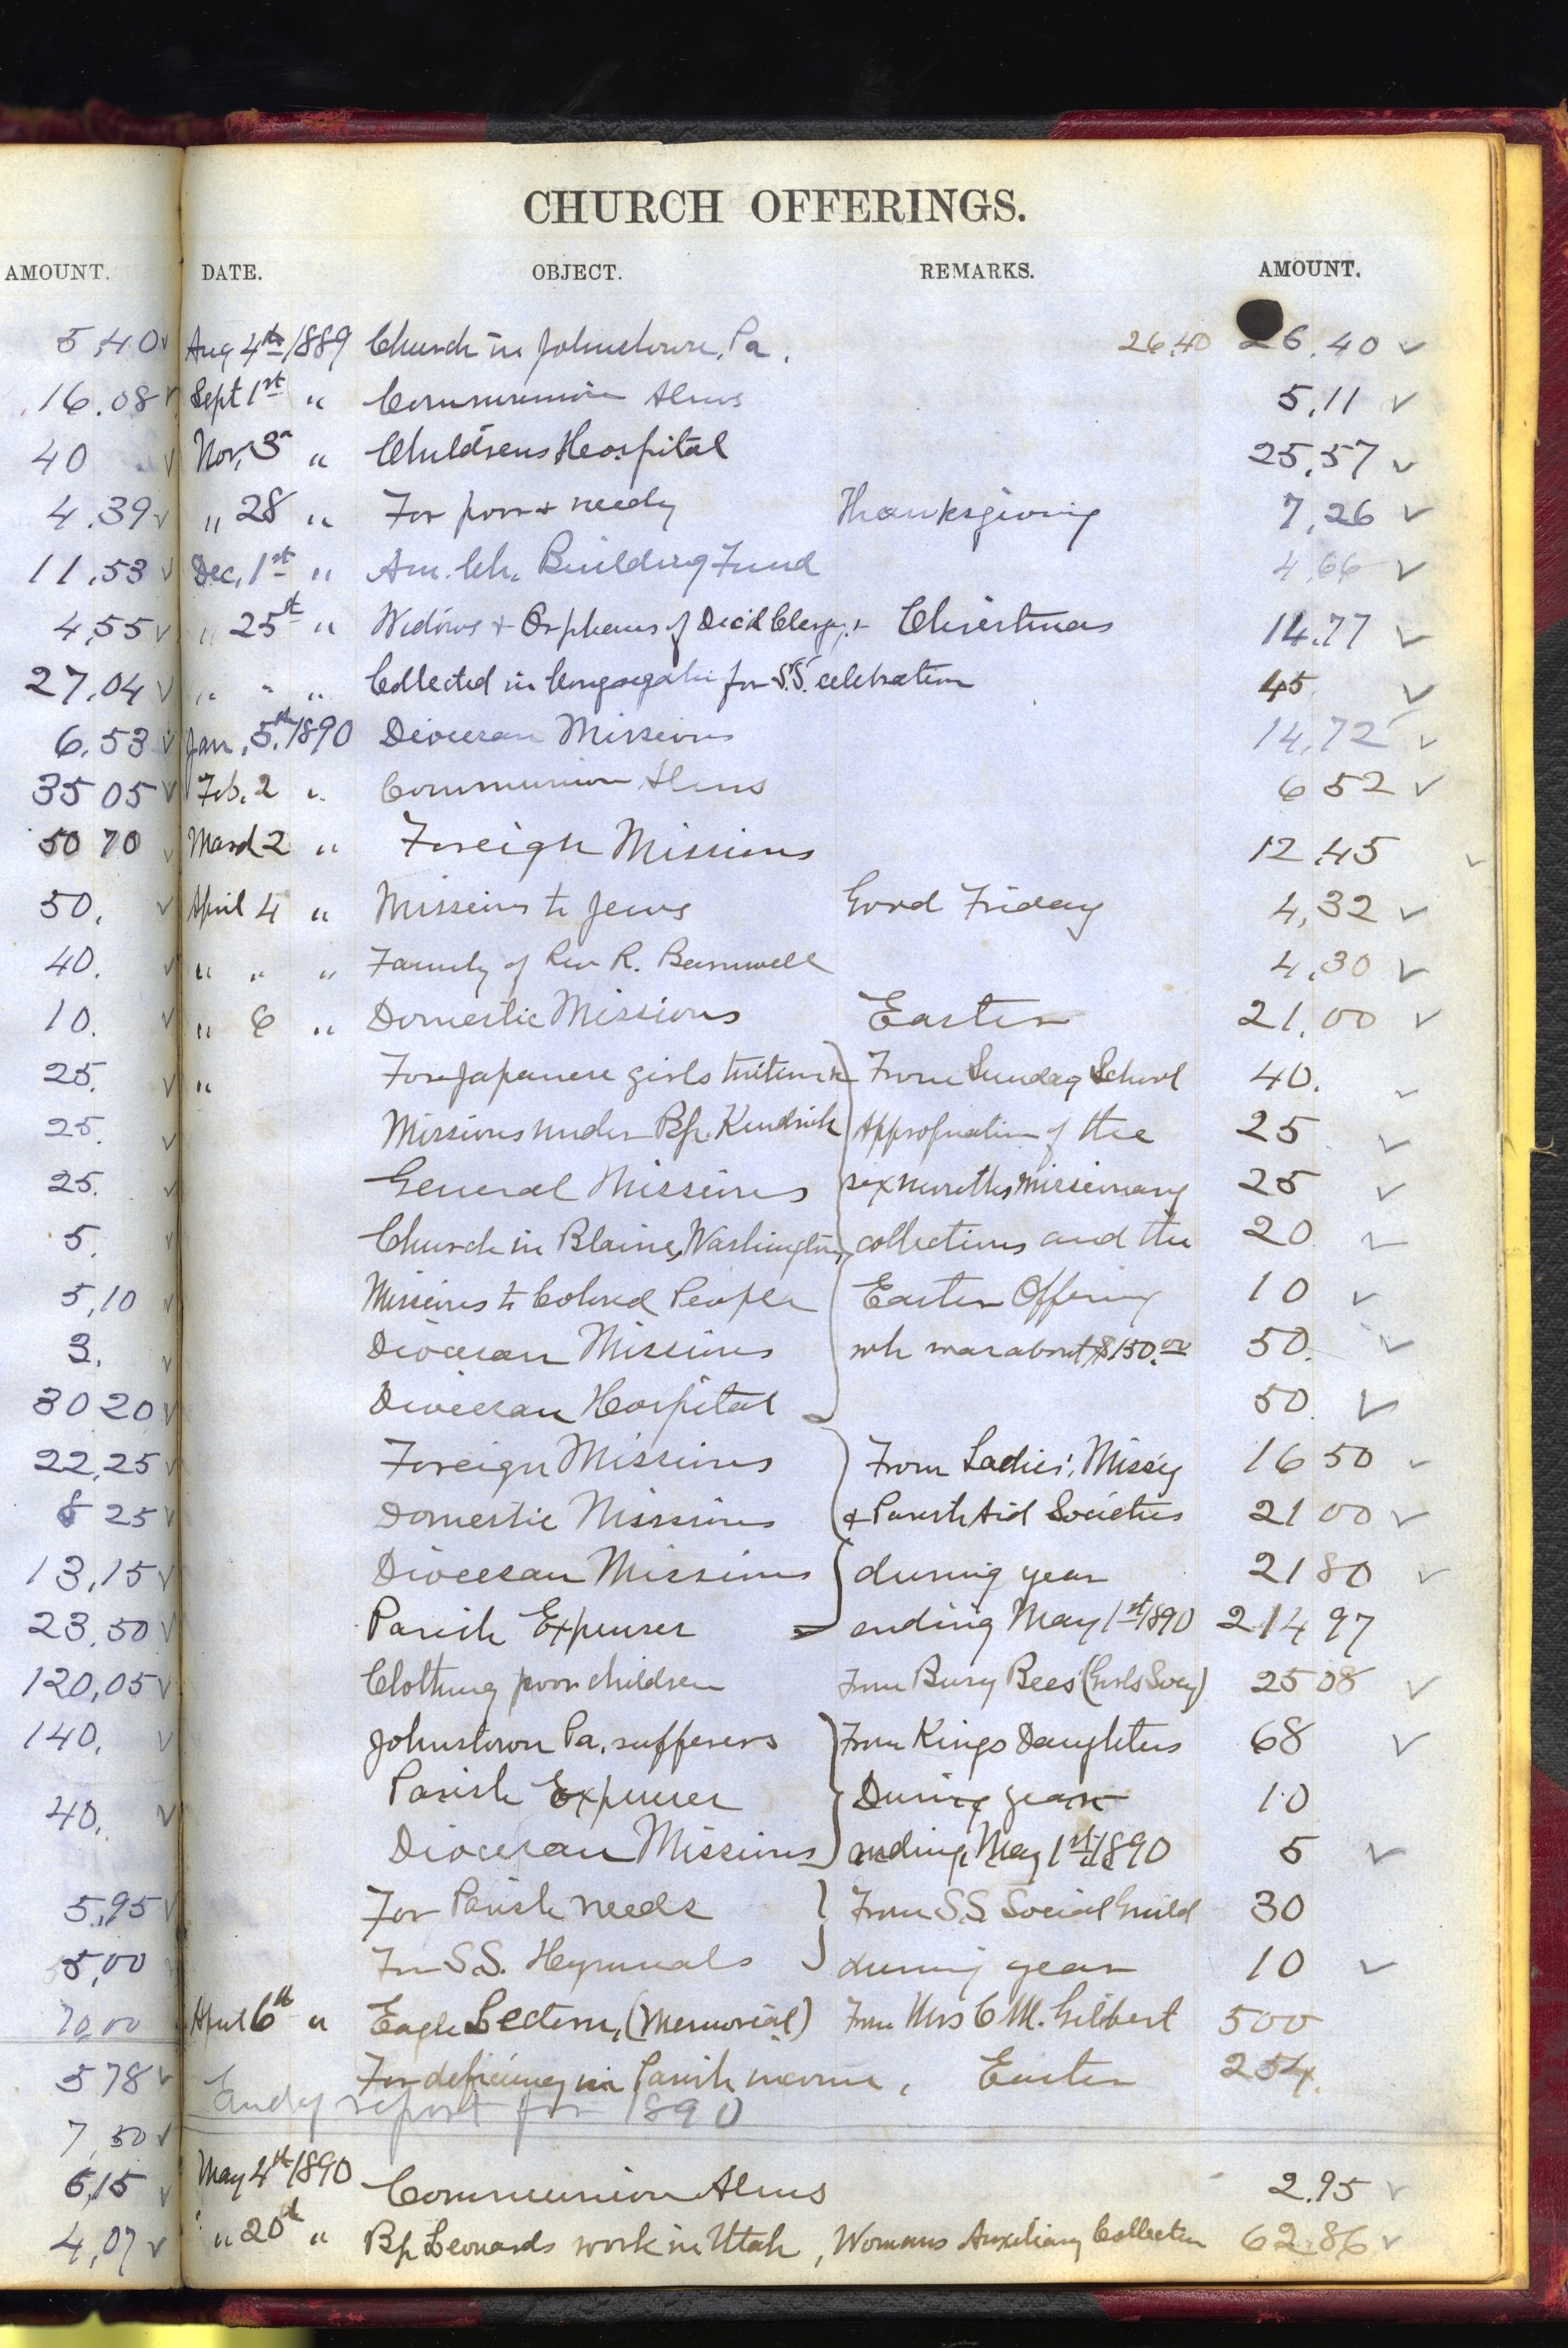 CHURCH OFFERINGS.
AMOUNT. DATE. OBJECT. REMARKS. AMOUNT.
5,40 Aug 4th 1889 Church in Johnstown, Pa. 26.40 26.40 ✓
16.08 Sept 1st " Communion Alms 5,11 ✓
40 Nov, 3d " Childrens Hospital 25,57 ✓
4.39 " 28 " For poor + needy Thanksgiving 7,26 ✓
11,53 Dec, 1st " Am. Ch. Building Fund 4,66 ✓
4,55 " 25st " Widows + Orphans of Dec'd Clergy Christmas 14.77 ✓
27,04 " " " Collected in Congregation for S.S. celebration 45 ✓
6,53 Jan, 5th, 1890 Diocesan Missions 14,72 ✓
35 05 Feb. 2 " Communion Alms 6 52 ✓
50 70 March 2 " Foreign Missions 12,45 ✓
50, April 4 " Missions to Jews Good Friday 4,32 ✓
40. " " " Family of Rev R. Barnwell 4,30 ✓
10. " 6 " Domestic Missions Easter 21,00 ✓
25. " For Japanese girls tuition From Sunday School 40. ✓
25. Missions under Bp. Kendrick Appropriation of the 25 ✓
25. General Missions six months missionary 25 ✓
5. Church in Blaine, Washington, collections and the 20 ✓
5,10 Missions to Colored People Easter Offering 10 ✓
3. Diocesan Missions wh was about $150.00 50. ✓
30 20 Diocesan Hospital 50. ✓
22,25 Foreign Missions From Ladies' Missy 16 50 ✓
8 25 Domestic Missions + Parish Aid Societies 21 00 ✓
13,15 Diocesan Missions during year 21 80 ✓
23,50 Parish Expenses ending May 1st 1890 214 97
120,05 Clothing poor children From Busy Bees (Girls Socy) 25 08 ✓
140, Johnstown Pa. sufferers From Kings Daughters 68 ✓
Parish Expenses During year 10
40, Diocesan Missions ending May 1st 1890 5 ✓
5,95 For Parish needs From S.S. Social Guild 30
5,00 For S.S. Hymnals during year 10 ✓
70,00 April 6th " Eagle Lectern, (Memorial) From Mrs C M. Gilbert 500
5 78 For deficiency in Parish income, Easter 254.
Ends report for 1890
7,50
6,15 May 4th 1890 Communion Alms 2.95 ✓
4,07 " 20th " Bp Leonards work in Utah, Womans Auxiliary Collection 62.86 ✓